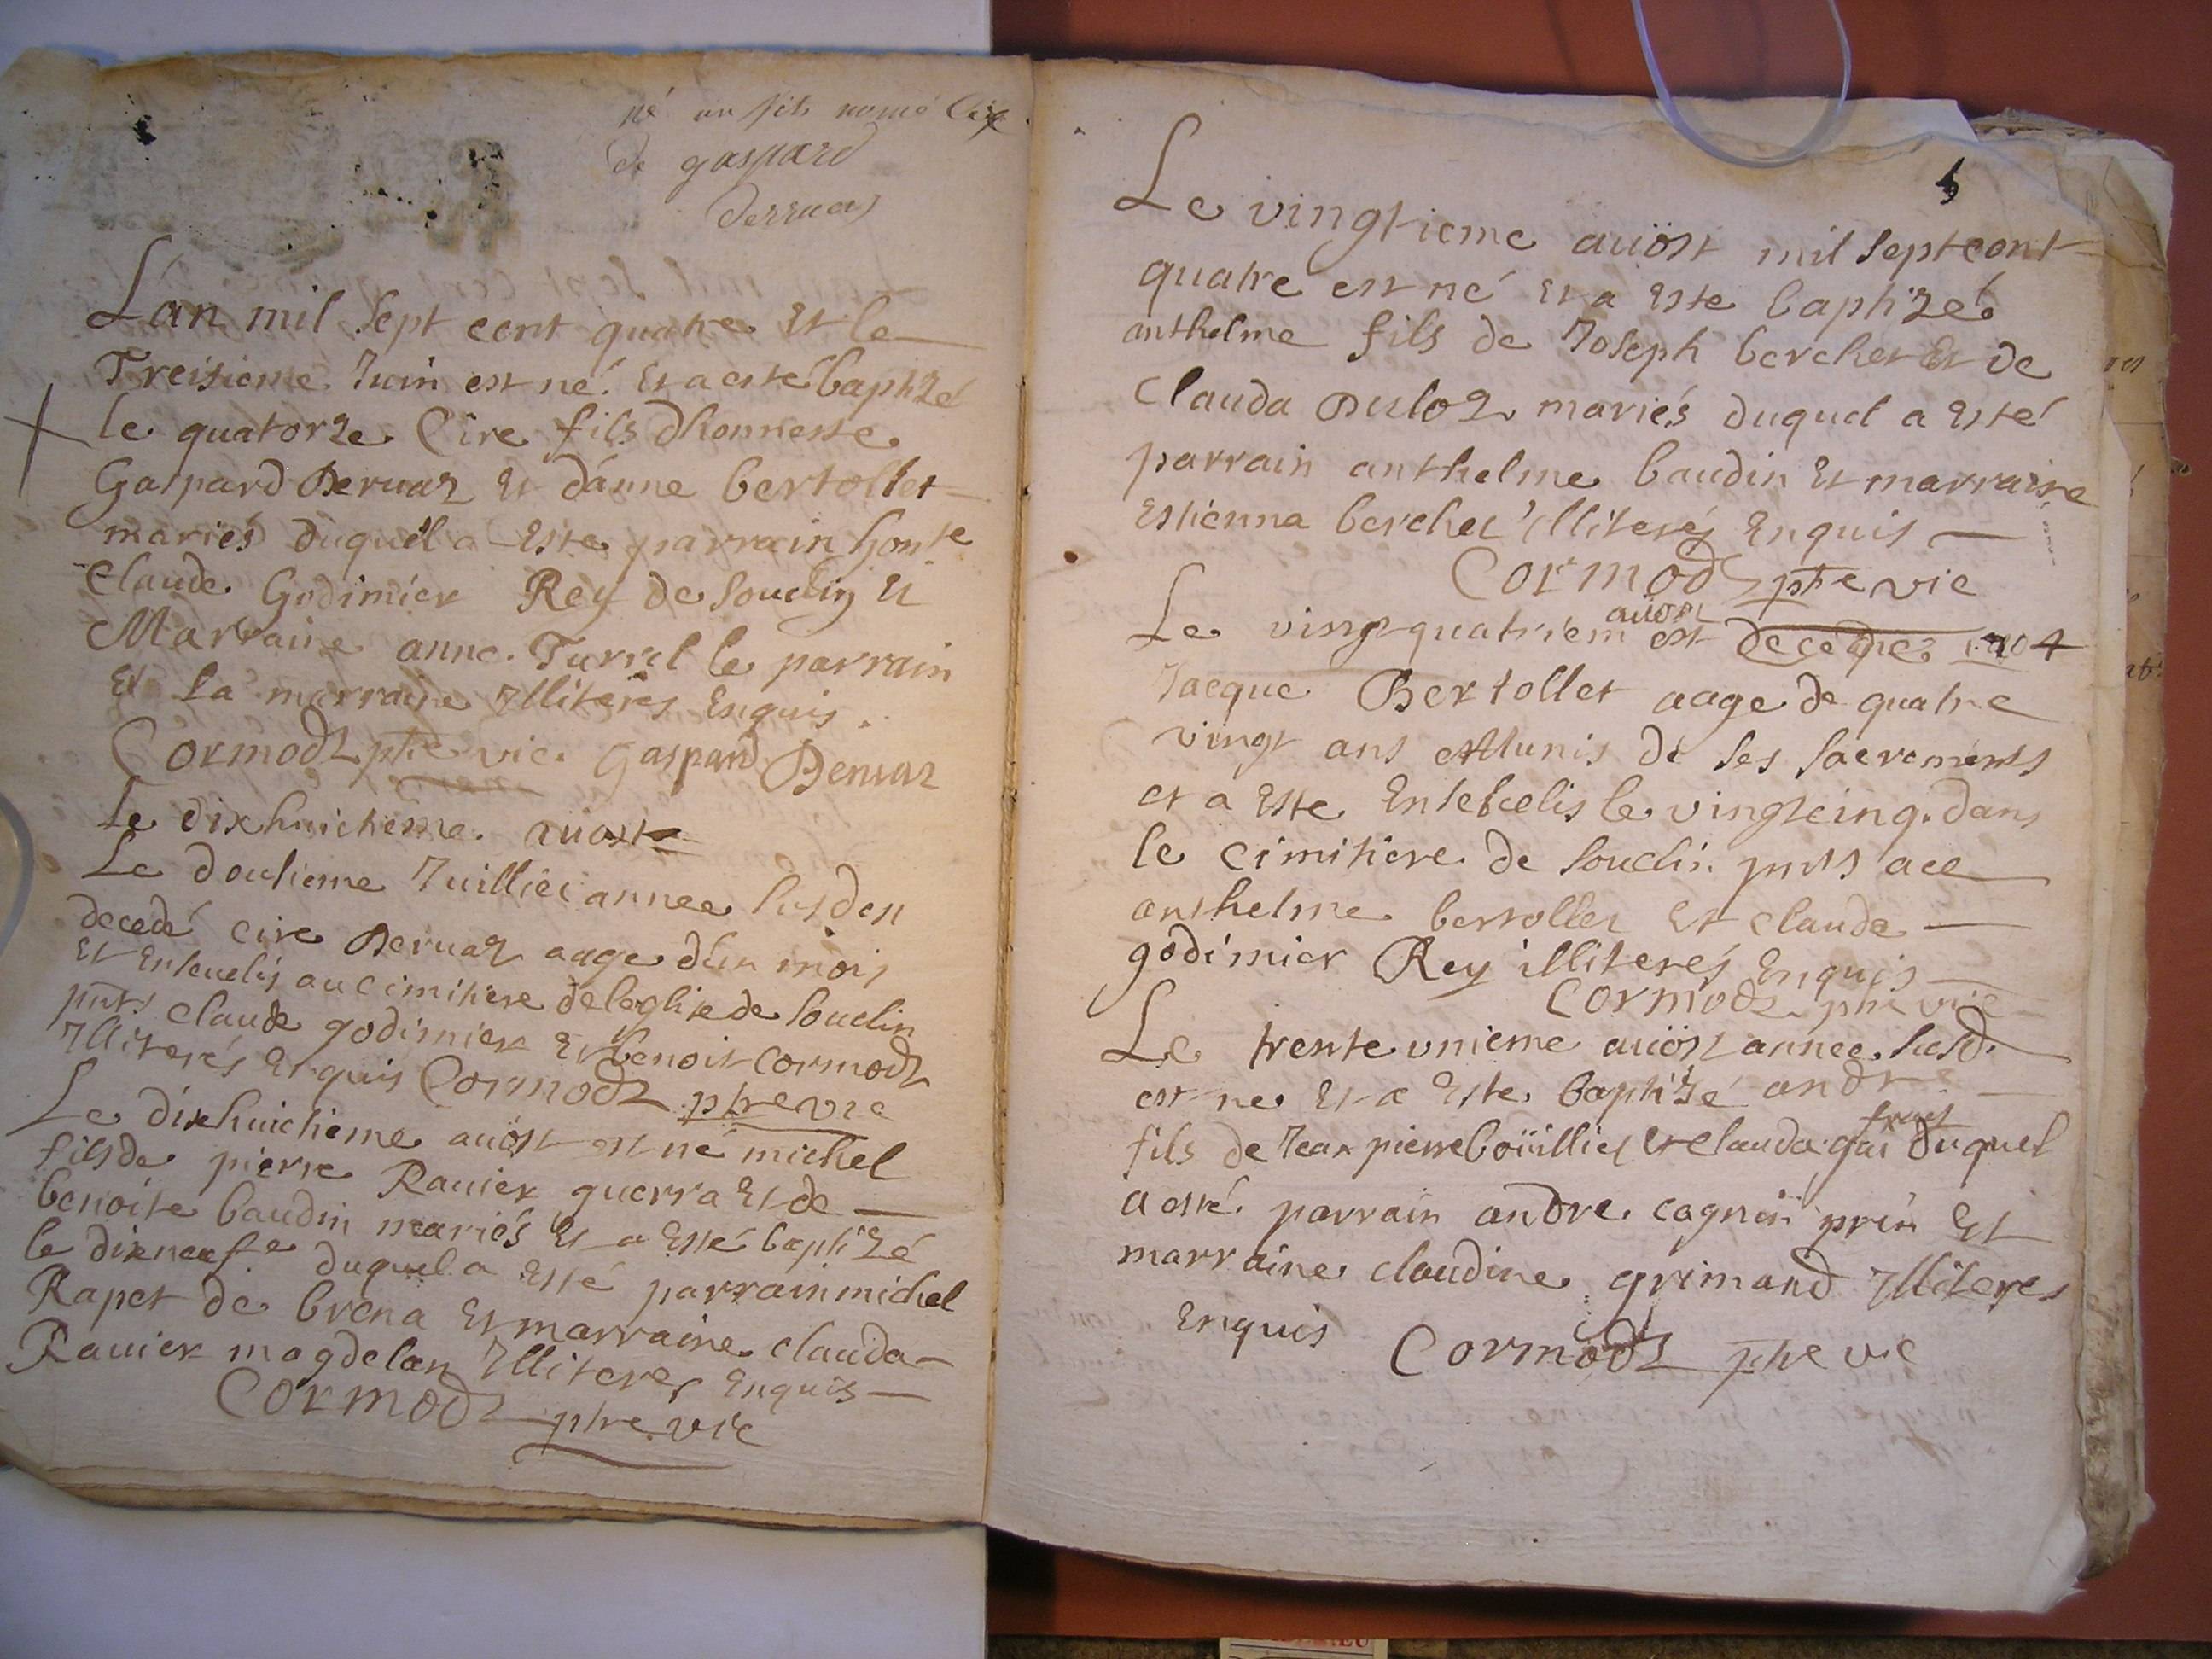 né un fils nomé Cire
de gaspard
derruas
L'an mil sept cent quatre et le
Treisieme Juin est né. Et a esté baptizé
le quatorze Cire fils d'honneste
Gaspard Deruaz Et d'anne bertollet
mariés duquel a Este parrain honte
Claude Godimier Rey de souclin Et
Marraine anne Turrel le parrain
Et la marraine Illiterés Enquis.
Cormodz ptre vic. Gaspard Deruaz
Le dixhuictieme auost
Le dousieme Juilliet annee susd est
decedé cire Deruaz aage d'un mois
Et Enseuelis au cimitiere de leglise de souclin
pnts claude godimier Et benoit cormodz
Illiterés Enquis Cormodz ptre vic
Le dixhuictieme auöst est né michel
fils de pierre Rauier guerra Et de
benoite baudin mariés Et a Esté baptizé
le dixneufe duquel a Esté parrain michel
Rapet de brena Et marraine clauda
Rauier magdelan Illiteres Enquis
Cormodz ptre vic
Le vingtieme auöst mil sept cent
quatre est né Et a Este baptizé
anthelme fils de Joseph berchet Et de
Clauda Duloz mariés duquel a Esté
parrain anthelme baudin Et marraine
Estienna berchet Illiterés Enquis
Cormodz ptre vic
auöst
Le vingtquatriem est decedez 1704
Jacque Bertollet aage de quatre
vingt ans Munis de ses sacrements
et a Este Enseuelis le vingtcinq. dans
le cimitiere de souclin pnts ace
anthelme bertollet Et claude
godimier Rey illiterés Enquis
Cormodz ptre vic
Le trente unieme auöst annee susd.
est ne Et a Este baptizé andre
fils de Jean pierre boüillier Et clauda gui duquel
a esté parrain andre cagnin Et
marraine claudine grimand Illiteres
Enquis Cormodz ptre vic